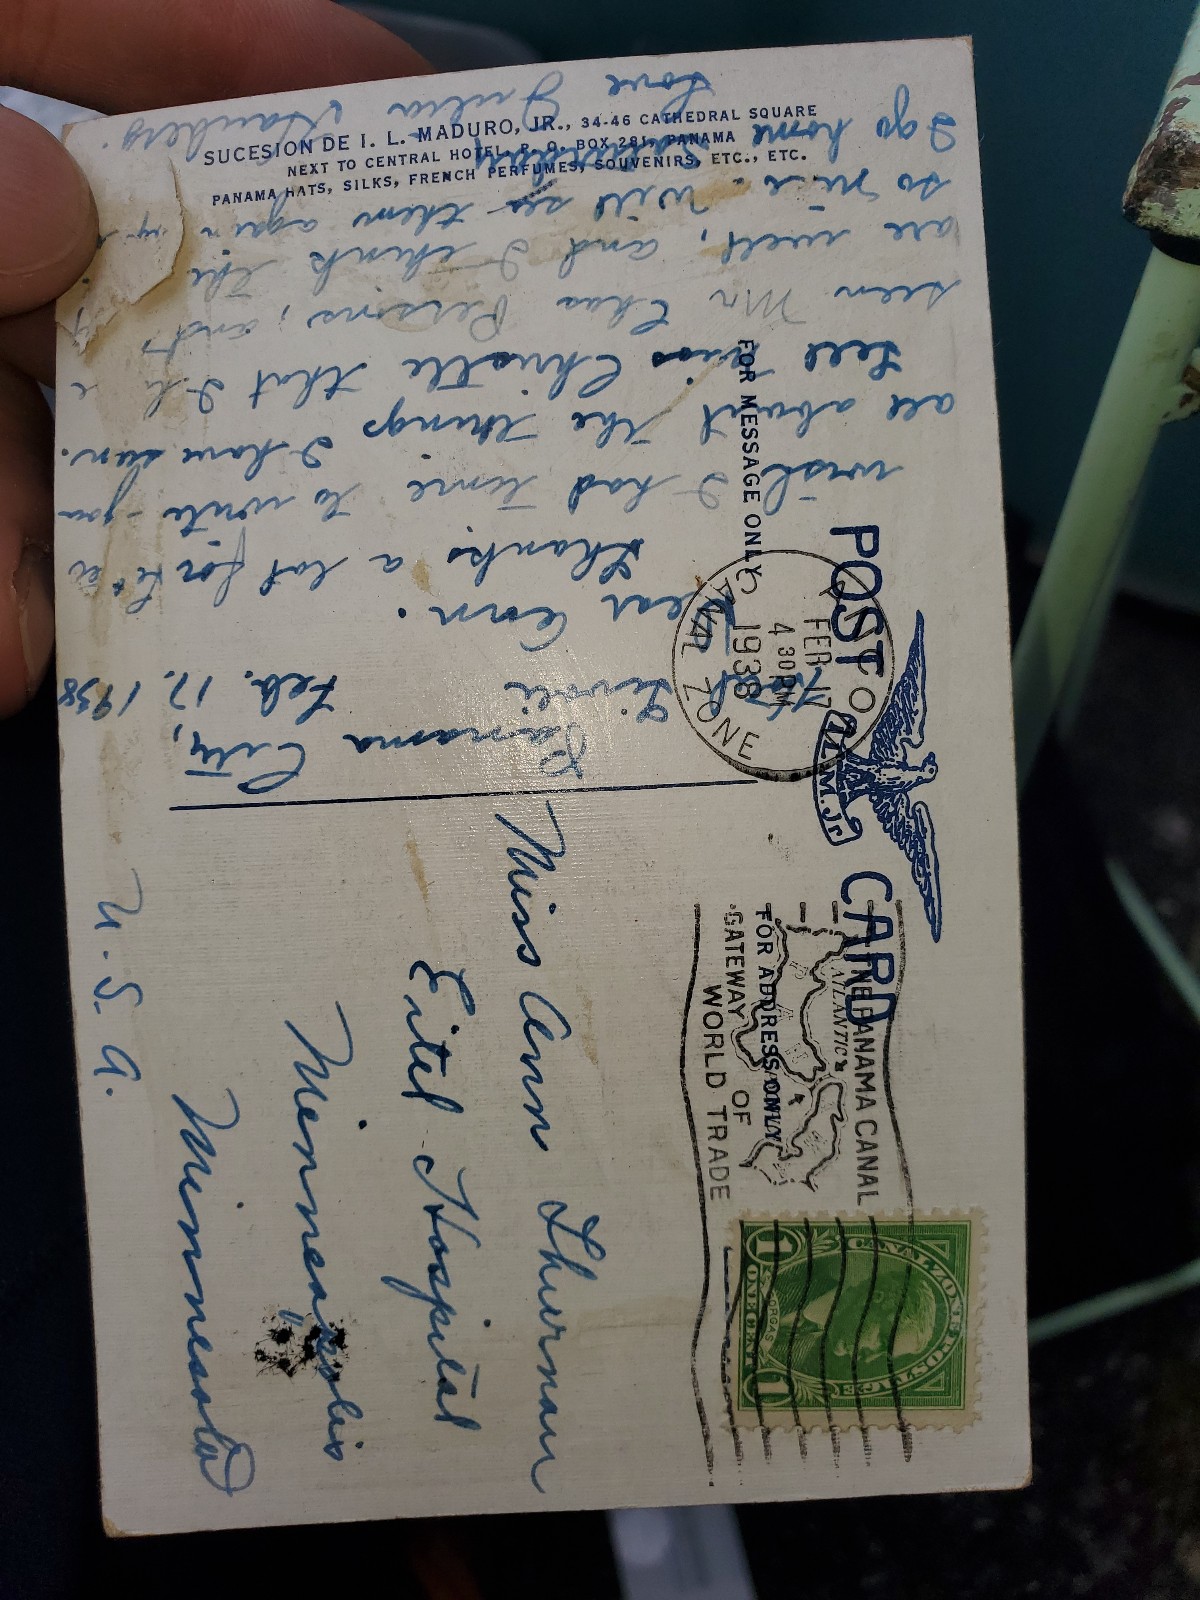 SUCESION DE I. L. MADURO, JR., 34-46 CATHEDRAL SQUARE
NEXT TO CENTRAL HOTEL, P. O. BOX 281, PANAMA
PANAMA HATS, SILKS, FRENCH PERFUMES, SOUVENIRS, ETC., ETC.
POST CARD
I.L.M. Jr
FOR MESSAGE ONLY
FOR ADDRESS ONLY
FEB 17
4 30 PM
1938
CANAL ZONE
THE PANAMA CANAL
ATLANTIC
GATEWAY OF
WORLD TRADE
CANAL ZONE POSTAGE
GORGAS
1 ONE CENT 1
Hotel Tivoli
Panama City,
Feb. 17. 1938
Dear Ann.
Thanks a lot for
wish I had time to write you
all about the things I have seen.
Tell Miss Christle that I
seen Mr Chas Persons, and
are well, and I think
so nice. Will see them again
I go home Saturday
Love Julia
Miss Ann Thurman
Eitel Hospital
Minneapolis
Minnesota
U. S. A.